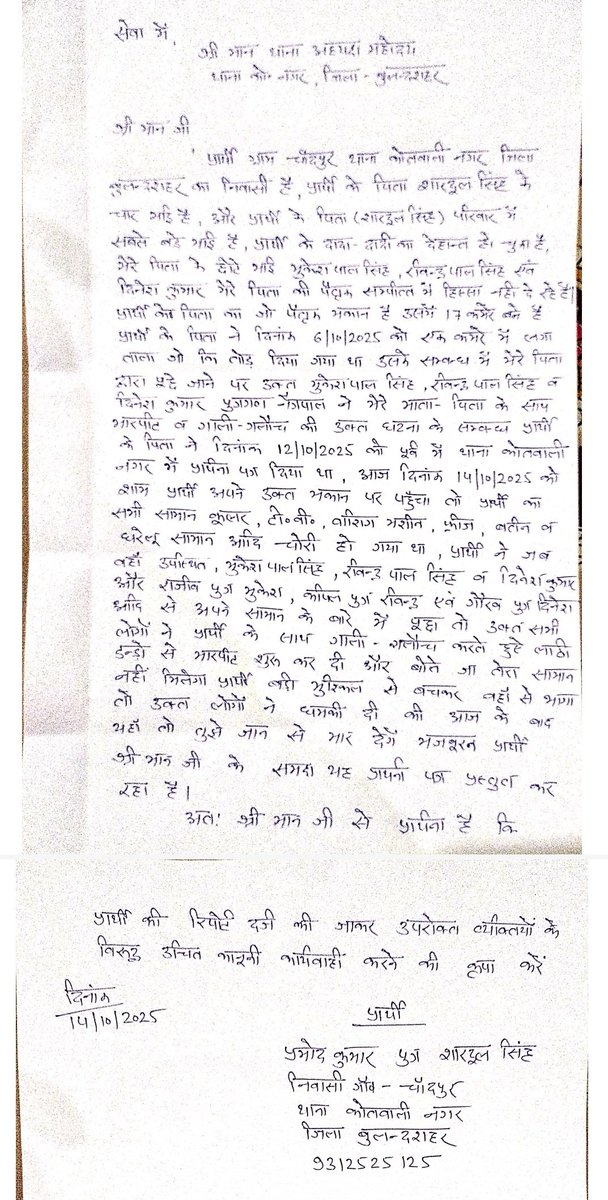 सेवा में,
श्री मान थाना अध्यक्ष महोदय
थाना को० नगर, जिला - बुलन्दशहर
श्री मान जी
प्रार्थी ग्राम चाँदपुर थाना कोतवाली नगर जिला
बुलन्दशहर का निवासी है, प्रार्थी के पिता शारदुल सिंह के
चार भाई है, और प्रार्थी के पिता (शारदुल सिंह) परिवार में
सबसे बडे भाई है, प्रार्थी के दादा-दादी का देहान्त हो चुका है,
मेरे पिता के छोटे भाई मुकेश पाल सिंह, रविन्द्र पाल सिंह एवं
दिनेश कुमार मेरे पिता की पैतृक सम्पत्ति में हिस्सा नही दे रहे है।
प्रार्थी के पिता का जो पैतृक मकान है उसमें 17 कमरे बने है
प्रार्थी के पिता ने दिनांक 6/10/2025 को एक कमरे में लगा
ताला जो कि तोड़ दिया गया था उसके सम्बन्ध में मेरे पिता
द्वारा पूछे जाने पर उक्त मुकेश पाल सिंह, रविन्द्र पाल सिंह व
दिनेश कुमार पुत्रगण नेत्रपाल ने मेरे माता-पिता के साथ
मारपीट व गाली-गलौच की उक्त घटना के सम्बन्ध प्रार्थी
के पिता ने दिनांक 12/10/2025 को पूर्व में थाना कोतवाली
नगर में प्रार्थना पत्र दिया था, आज दिनांक 14/10/2025 को
शाम प्रार्थी अपने उक्त मकान पर पहुँचा तो प्रार्थी का
सभी सामान कूलर, टी०वी०, वाशिंग मशीन, फ्रीज, बर्तन व
घरेलू सामान आदि चोरी हो गया था, प्रार्थी ने जब
वहाँ उपस्थित, मुकेश पाल सिंह, रविन्द्र पाल सिंह व दिनेश कुमार
और राजीव पुत्र मुकेश, कपिल पुत्र रविन्द्र एवं गौरव पुत्र दिनेश
आदि से अपने सामान के बारे में पूछा तो उक्त सभी
लोगों ने प्रार्थी के साथ गाली-गलौच करते हुए लाठी
डन्डो से मारपीट शुरू कर दी और बोले जा तेरा सामान
नहीं मिलेगा प्रार्थी बडी मुश्किल से बचकर वहाँ से भागा
तो उक्त लोगों ने धमकी दी की आज के बाद
यहाँ तो तुझे जान से मार देगें मजबूरन प्रार्थी
श्री मान जी के समक्ष यह प्रार्थना पत्र प्रस्तुत कर
रहा है।
अतः श्री मान जी से प्रार्थना है कि
प्रार्थी की रिपोर्ट दर्ज की जाकर उपरोक्त व्यक्तियों के
विरूद्ध उचित कानूनी कार्यवाही करने की कृपा करें
दिनांक
14/10/2025
प्रार्थी
प्रमोद कुमार पुत्र शारदुल सिंह
निवासी गाँव - चाँदपुर
थाना कोतवाली नगर
जिला बुलन्दशहर
9312525125